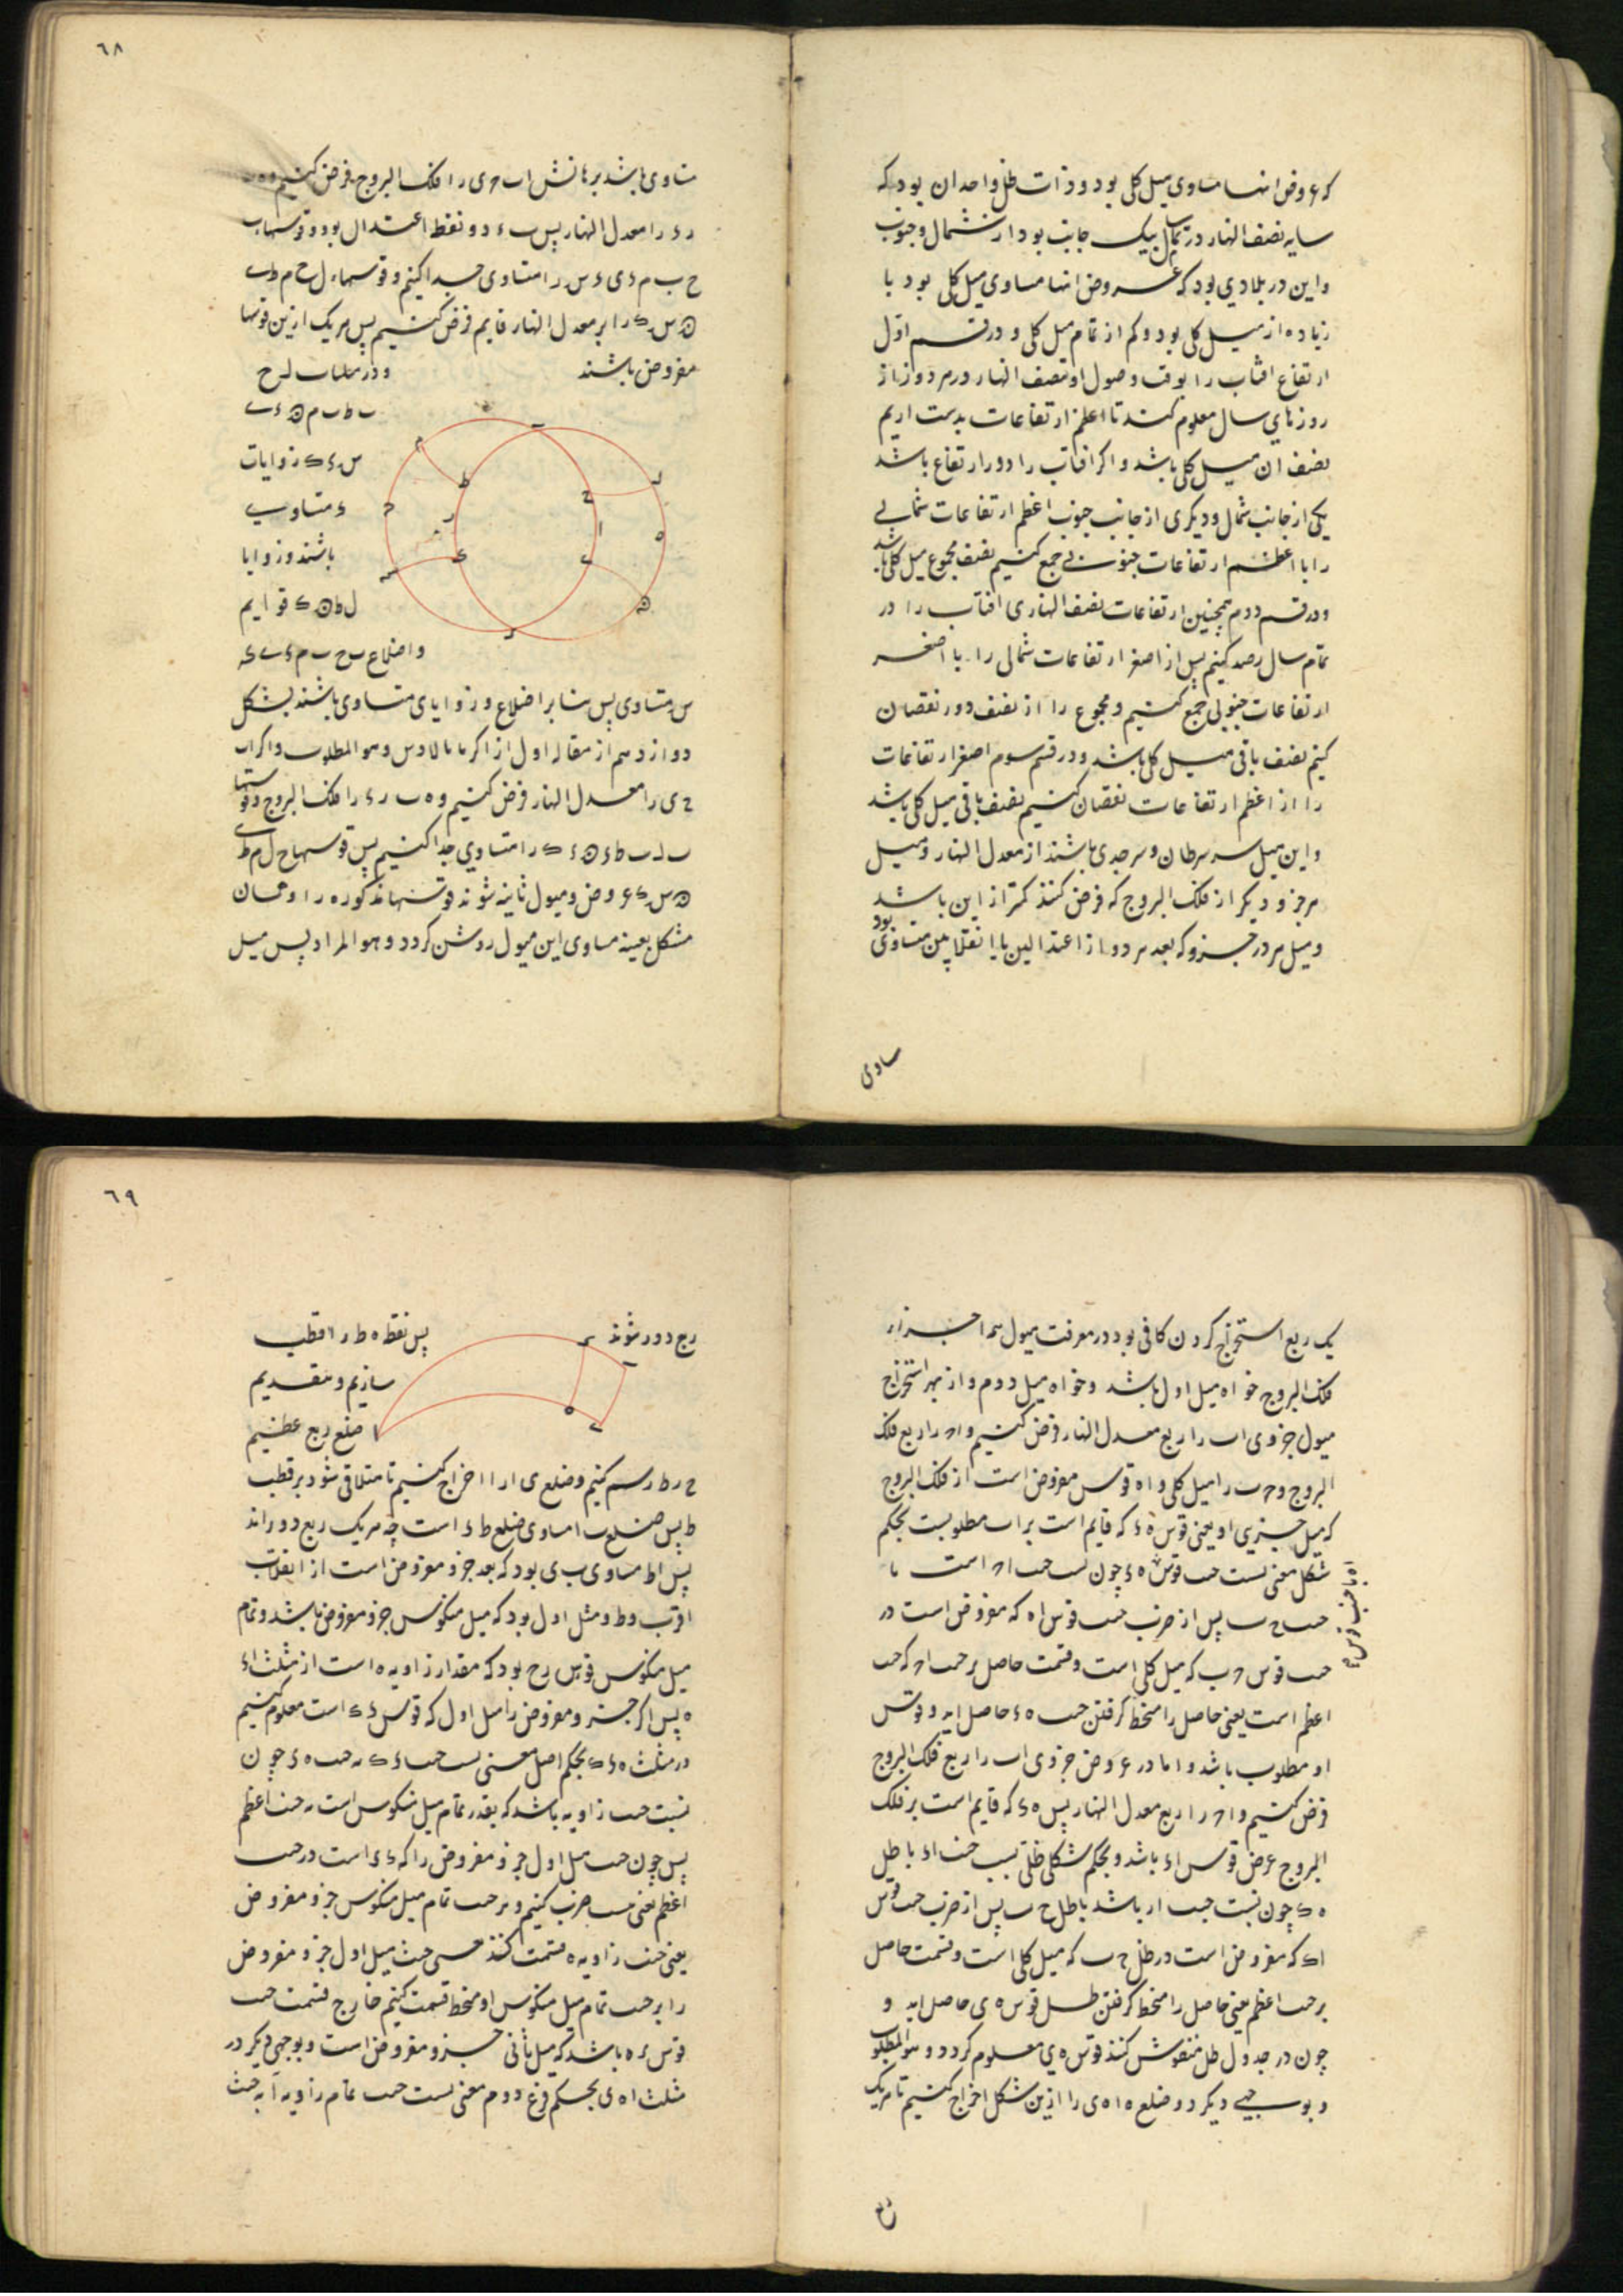 که عروض انها مساوی میل کلی بود و ذات ظل واحد ان بود که
سایه نصف النهار در تمام سال بیک جانب بود از شمال و جنوب
و این در بلادی بود که عروض انها مساوی میل کلی بود یا
زیاده از میل کلی بود و کم از تمام میل کلی و در قسم اول
ارتفاع افتاب را بوقت وصول او بنصف النهار در هر روز از
روزهای سال معلوم کنند تا اعظم ارتفاعات بدست اریم
نصف ان میل کلی باشد و اکر افتاب را دو ارتفاع باشد
یکی از جانب شمال و دیکری از جانب جنوب اعظم ارتفاعات شمالی
را با اعظم ارتفاعات جنوبی جمع کنیم نصف مجموع میل کلی باشد
و در قسم دوم همچنین ارتفاعات نصف النهاری افتاب را در
تمام سال رصد کنیم پس از اصغر ارتفاعات شمالی را با اصغر
ارتفاعات جنوبی جمع کنیم و مجموع را از نصف دور نقصان
کنیم نصف باقی میل کلی باشد و در قسم سوم اصغر ارتفاعات
را از اعظم ارتفاعات نقصان کنیم نصف باقی میل کلی باشد
و این میل سر سرطان و سر جدی باشند از معدل النهار و میل
هر جزو دیکر از فلک البروج که فرض کنند کمتر از این باشد
و میل هر در جزو که بعد هر دو از اعتدالین یا انقلابین متساوی بود
ساوی
٦٨
متساوی باشد برهانش اب ح ی را فلک البروج فرض کنیم و ه ب
ر ء را معدل النهار پس ب ء دو نقطه اعتدال بود و قوسهاب
ح ب م ء ی ء س را متساوی جدا کنیم و قوسهاء ل ح م ط ی
ه س ک را بر معدل النهار قایم فرض کنیم پس هر یک ازین قوسها
مفروض باشند و در مثلثات ل ح
ب ط ب م ه ء ی
س ء ک زوایات
ء متساوی
باشند و زوایا
ل ط ه ک قوایم
و اضلاع ب ح ب م ء ی ء
س متساوی پس بنابر اضلاع و زوایای متساوی باشند بشکل
دوازدهم از مقاله اول از اکر مانالاوس و هو المطلوب و اکر اب
ح ی را معدل النهار فرض کنیم و ه ب ر ء را فلک البروج و قوسها
ب ل ب ط ء ه ء ک را متساوی جدا کنیم پس قوسهاح ل م ط ی
ه س ک عروض و میول ثانیه شوند قوسهاء مذکوره را و همان
مشکل بعینه مساوی این میول روشن کردد و هو المراد پس میل
یک ربع استخراج کردن کافی بود در معرفت میول همه اجزاء
فلک البروج خواه میل اول باشد و خواه میل دوم و از بهر استخراج
میول جزوی اب را ربع معدل النهار فرض کنیم و اح را ربع فلک
البروج و ح ب را میل کلی و اه قوس مفروض است از فلک البروج
که میل جزوی او یعنی قوس ه ء که قایم است بر اب مطلوبست بحکم
شکل مغنی نسبت جیب قوس ه ء چون نسبت جیب اح است با
جیب ح ب پس از ضرب جیب قوس اه که مفروض است در
جیب قوس ح ب که میل کلی است و قسمت حاصل بر جیب اح که جیب
اعظم است یعنی حاصل را منحط کرفتن جیب ه ء حاصل اید و قوس
او مطلوب باشد و اما در عروض جزوی اب را ربع فلک البروج
فرض کنیم و اح را ربع معدل النهار پس ه ء که قایم است بر فلک
البروج عرض قوس اء باشد و بحکم شکل ظلی نسبت جیب اء با ظل
ه ء چون نسبت جیب ار باشد با ظل ح ب پس از ضرب جیب قوس
اء که مفروض است در ظل ح ب که میل کلی است و قسمت حاصل
بر جیب اعظم یعنی حاصل را منحط کرفتن ظل قوس ه ی حاصل اید و
چون در جدول ظل منقوش کنند قوس ه ی معلوم کردد و هو المطلوب
و بوجهی دیکر دو ضلع ه ا ه ی را ازین شکل اخراج کنیم تا هر یک
٦٩
رح دور شوند پس نقطه ه ط را قطب
سازیم و بتقدیم
ضلع ربع عظیم
ح ر ط رسم کنیم و ضلع ی ا را اخراج کنیم تا متلاقی شود بر قطب
ط پس ضلع ب ا مساوی ضلع ط ء است چه هر یک ربع دوراند
پس اط مساوی ب ی بود که بعد جزو مفروض است از انقلاب
اقرب و ط و مثل اول بود که میل منکوس جزو مفروض باشد و تمام
میل منکوس قوس رح بود که مقدار زاویه ه است از مثلث اء
ه پس اکر جزو مفروض را میل اول که قوس ء ک است معلوم کنیم
در مثلث ه ء ک بحکم اصل مغنی نسبت جیب ء ک به جیب ه ء چون
نسبت جیب زاویه باشد که بقدر تمام میل منکوس است به جیب اعظم
پس چون جیب میل اول جزو مفروض را که ء ک است در جیب
اعظم یعنی ضرب کنیم و بر جیب تمام میل منکوس جزو مفروض
یعنی جیب زاویه ه قسمت کنند جیب میل اول جزو مفروض
را بر جیب تمام میل منکوس او منحط قسمت کنیم خارج قسمت جیب
قوس ء ه باشد که میل ثانی جزو مفروض است و بوجهی دیکر در
مثلث اه ی بحکم فرع دوم مغنی نسبت جیب تمام زاویه ا به جیب